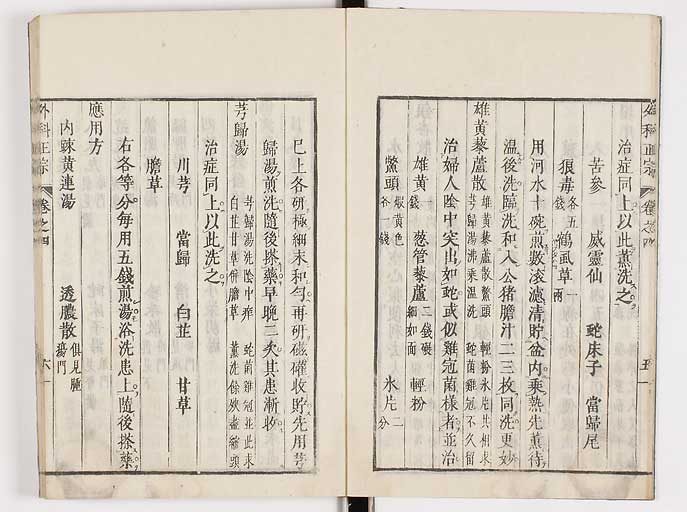 外科正宗
卷之四
五
治症同上以此薰洗之
苦參 威靈仙 蛇床子 當歸尾
狼毒各五錢 鶴虱草一兩
用河水十碗煎數滾濾清貯盆內乘熱先薰待
溫後洗臨洗和入公猪膽汁二三枚同洗更妙
雄黃藜蘆散
雄黃藜蘆散鱉頭 輕粉氷片共相求
芎歸湯沸乘溫洗 蛇菌雞冠不久留
治婦人陰中突出如蛇或似雞冠菌樣者並治
雄黃一錢 葱管藜蘆二錢碾細如面 輕粉
鱉頭煅黃色各一錢 氷片二分
已上各研極細末和勻再研磁罐收貯先用芎
歸湯煎洗隨後搽藥早晚二次其患漸收
芎歸湯
芎歸湯洗陰中痒 蛇菌雞冠並此求
白芷甘草併膽草 薰洗
治症同上以此洗之
川芎 當歸 白芷 甘草
膽草
右各等分每用五錢煎湯浴洗患上隨後搽藥
應用方
內疎黃連湯 透膿散俱見腫瘍門
外科正宗
卷之四
六